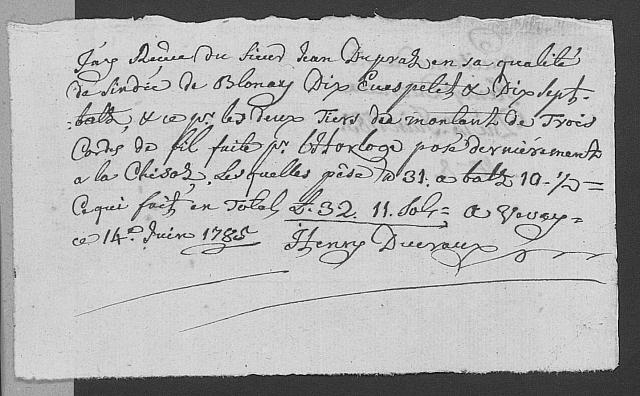 J'ay Reçue du Sieur Jean Dupraz en sa qualité
de Sindic de Blonay Dix Ecus petit & Dix sept
batz, & ce pr. les deux Tiers du montant de Trois
Cordes de fil faite pr. l'horloge posé dernièrement
a la Chiésaz, Les quelles pése ℔ 31. a batz 10 ½ =
Ce qui fait en Total L. 32. 11. Sols = a Vevay =
ce 14e. Juin 1785 Henry Ducraux